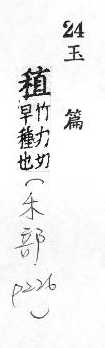 24 玉篇
稙竹力切
早種也
(禾部 p226)